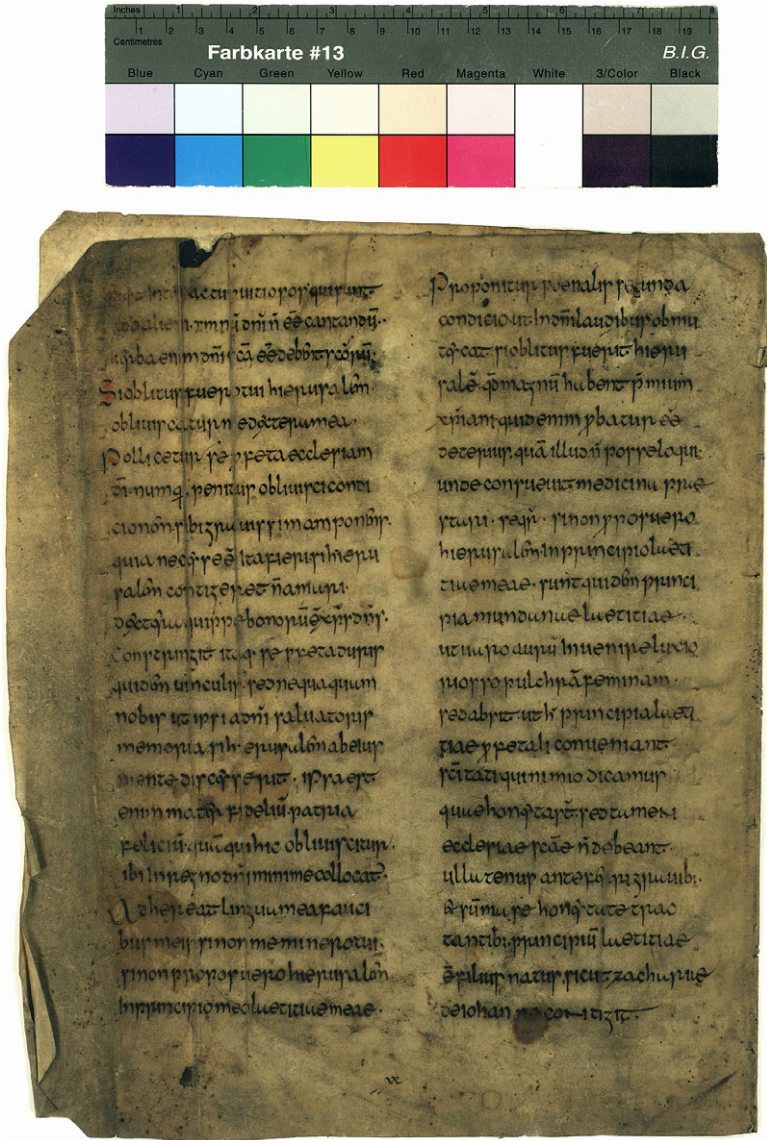 Inches 1 2 3 4 5 6 7 8
Centimetres 1 2 3 4 5 6 7 8 9 10 11 12 13 14 15 16 17 18 19
Farbkarte #13 B.I.G.
Blue Cyan Green Yellow Red Magenta White 3/Color Black
uitiosos quierunt
dñi ñ eē cantandū·
uerba enim dñi
Si oblitus fuero tui hierusalem
obliuiscatur me dextera mea·
Pollicetur se ꝓfeta ecclesiam
penitus obliuisci condi
cionem sibi grauissimam ponens·
quia necesse ē ita fieri si hieru
salem contigeret ñ amari·
dextera quippe bonorū ē xp̄s dñs·
Constringit itaq; se ꝓfeta durus
quidem uinculis sed nequaquam
nobis ut ipsi a dñi saluatoris
memoria si hierusalem ab eius
mente discesserit· ipsa est
enim mater fideliū· patria
feliciū· quā qui hic obliuiscitur·
ibi in regno dñi minime collocat̄·
Adhereat lingua mea fauci
bus meis si non meminero tui·
si non proposuero hierusalem
in principio meo laetitiae meae·
Proponitur poenalis secunda
condicio ut in dñi laudibus obmu
tescat si oblitus fuerit hieru
salē· qd̄ magnū habent p̄mium
xp̄iani· quid enim ꝓbatur eē
deterius quā illud ñ posse loqui
unde consueuit medicina prae
stari· sequit̄· si non ꝓposuero
hierusalem in principio laeti
tiae meae· sunt quidem princi
pia mundanae laetitiae·
ut auro aurū inuenire
pulchrā feminam·
sed absit ut h principia laeti
tiae ꝓfetali conueniant
sc̄itati quin immo dicamus
quae honestas sed tamen
ecclesiae sc̄ae ñ debeant·
ullatenus anteferri
Et summa se honestate trac
tanti principiū laetitiae
ē filius natus· sicut zachariae
de iohanne contigit·